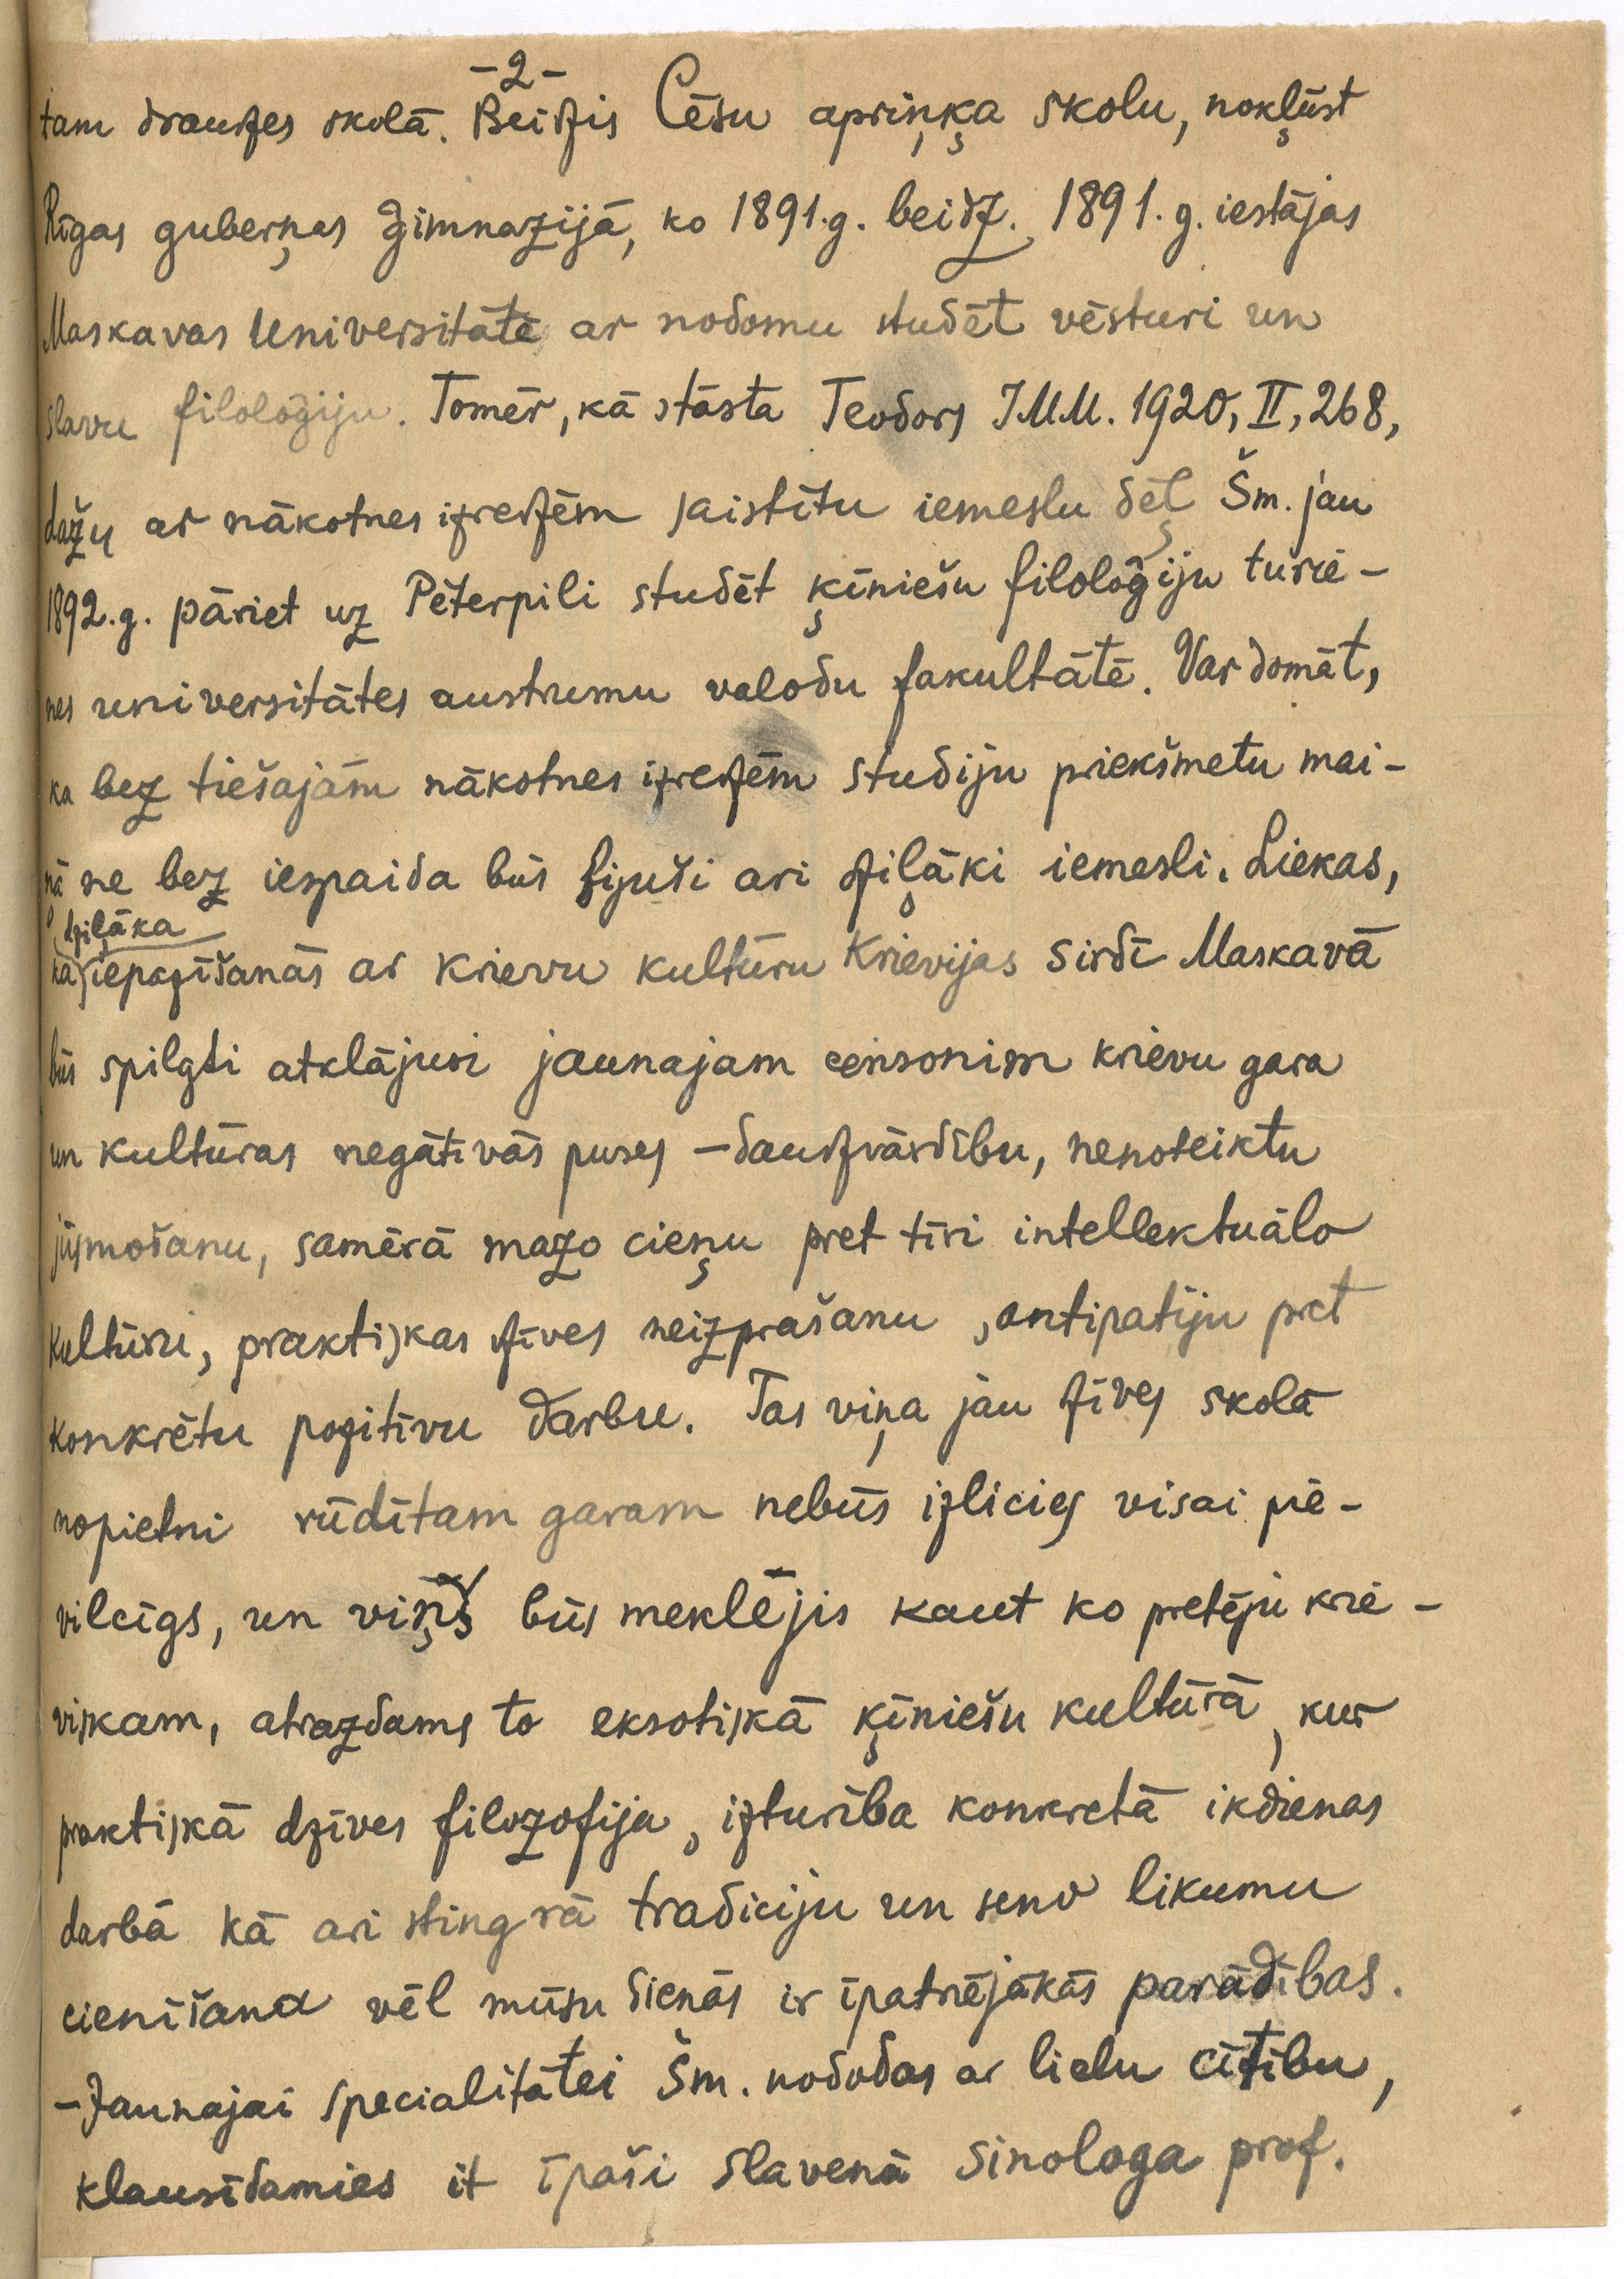 -2-
tam draudzes skolā. Beidzis Cēsu apriņķa skolu, nokļūst
Rīgas guberņas ģimnazijā, ko 1891.g. beidz. 1891.g. iestājas
Maskavas Universitātē ar nodomu studēt vēsturi un
slavu filoloģiju. Tomēr, kā stāsta Teodors IMM. 1920, II, 268,
dažu ar nākotnes izredzēm saistītu iemeslu dēļ Šm. jau
1892.g. pāriet uz Pēterpili studēt ķīniešu filoloģiju turie-
nes universitātes austrumu valodu fakultātē. Var domāt,
ka bez tiešajām nākotnes izredzēm studiju priekšmetu mai-
ņā ne bez iespaida būs bijuši ari dziļāki iemesli. Liekas,
dziļāka
ka iepazīšanās ar krievu kultūru Krievijas sirdī Maskavā
būs spilgti atklājusi jaunajam censonim krievu gara
un kultūras negātīvās puses – daudzvārdību, nenoteiktu
jūsmošanu, samērā mazo cieņu pret tīri intellektuālo
kultūru, praktiskas dzīves neizprašanu, antipatiju pret
konkrētu pozitīvu darbu. Tas viņa jau dzīves skolā
nopietni rūdītam garam nebūs izlicies visai pie-
vilcīgs, un viņš būs meklējis kaut ko pretēju krie-
viskam, atrazdams to eksotiskā ķīniešu kultūrā, kur
praktiskā dzīves filozofija, izturība konkretā ikdienas
darbā kā ari stingrā tradiciju un seno likumu
cienīšana vēl mūsu dienās ir īpatnējākās parādības.
– Jaunajai specialitātei Šm. nododas ar lielu cītību,
klausīdamies it īpaši slavenā sinologa prof.